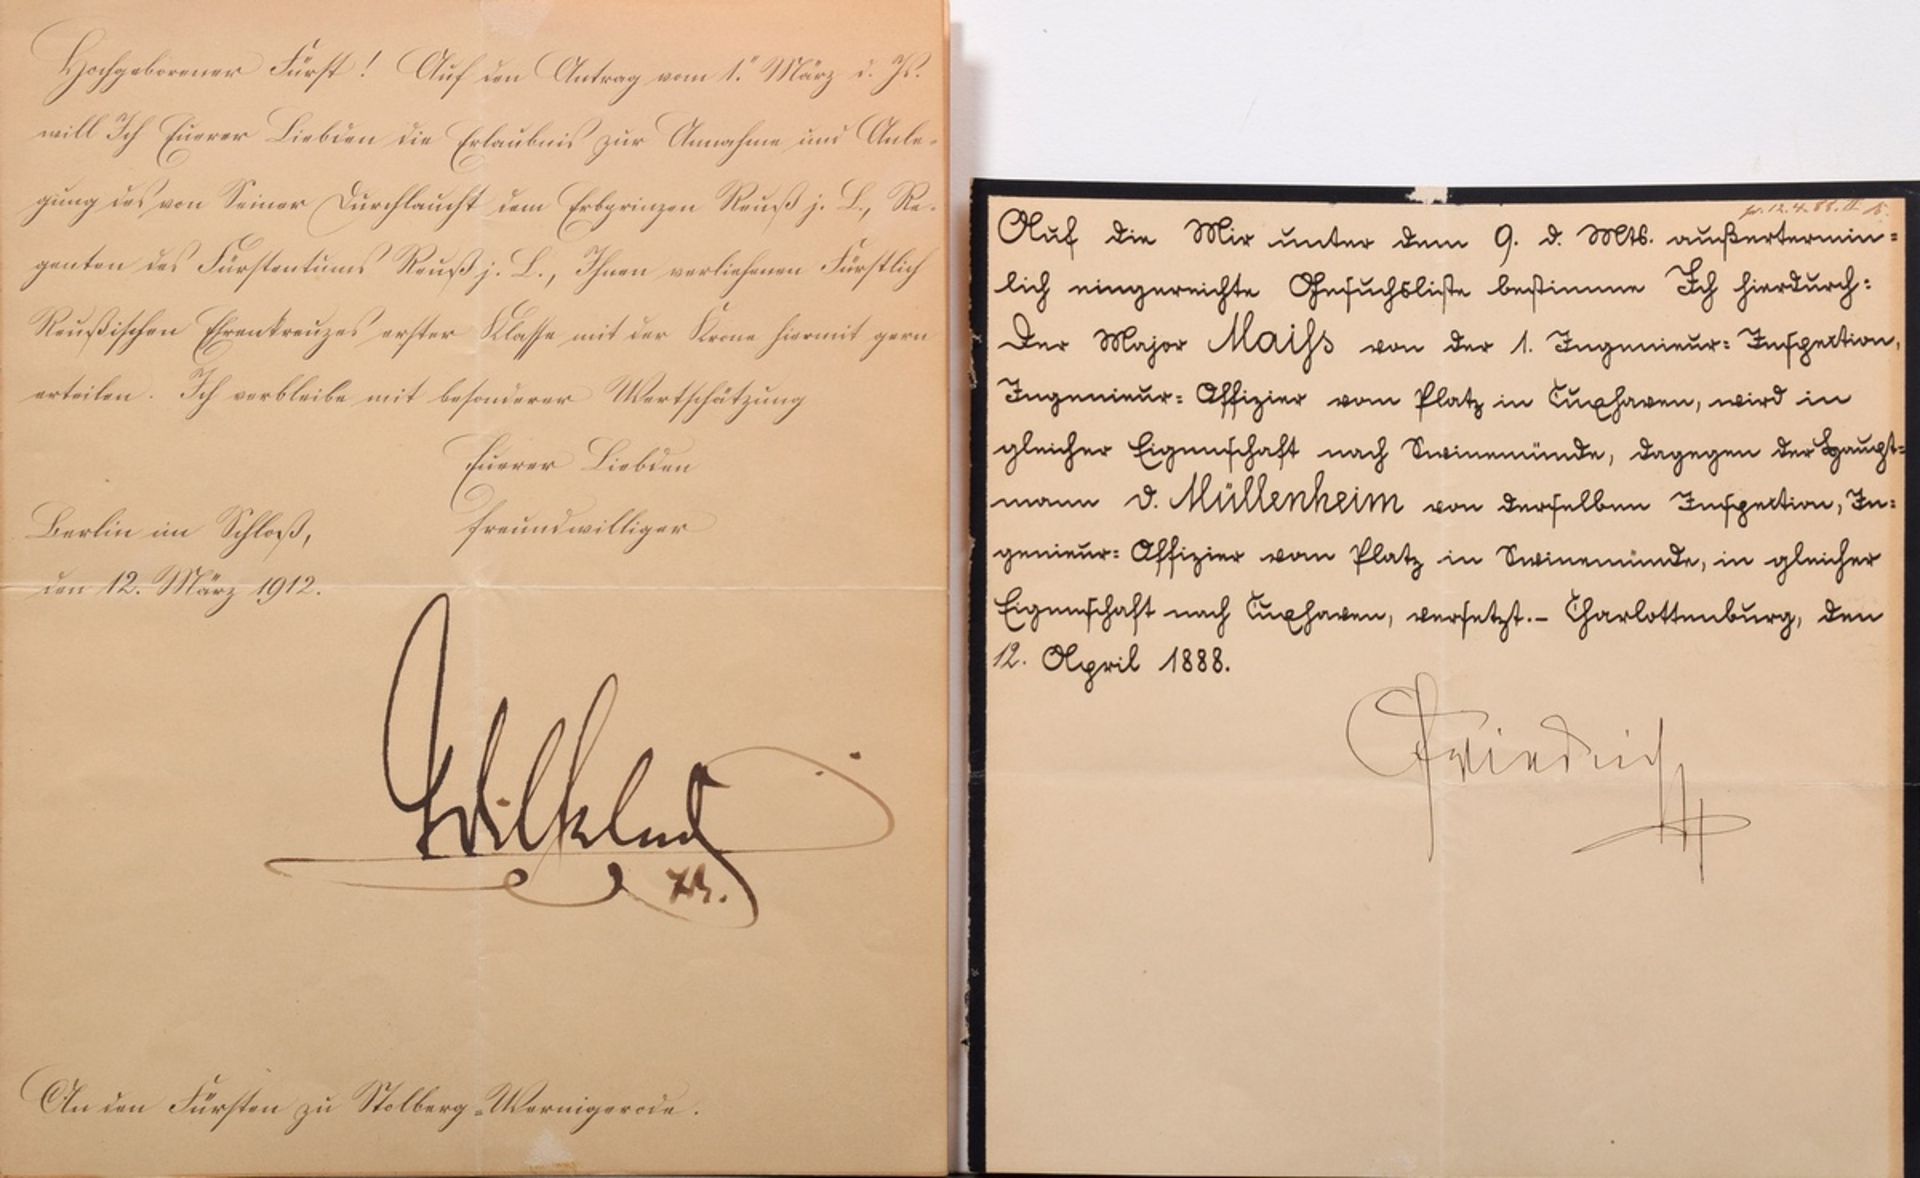 Hochgeborener Fürst! Auf den Antrag vom 1. März d. Js.
will Ich Euerer Liebden die Erlaubnis zur Annahme und Anle-
gung des von Seiner Durchlaucht dem Erbprinzen Reuß j. L., Re-
genten des Fürstentums Reuß j. L., Ihnen verliehenen Fürstlich
Reußischen Ehrenkreuzes erster Klasse mit der Krone hiermit gern
erteilen. Ich verbleibe mit besonderer Wertschätzung
Euerer Liebden
freundwilliger
Berlin im Schloß,
den 12. März 1912.
Wilhelm
An den Fürsten zu Stolberg-Wernigerode.
12.4.88.
Auf die Mir unter dem 9. d. Mts. außertermin=
lich eingereichte Gesuchsliste bestimme Ich hierdurch:
Der Major Maiss von der 1. Ingenieur=Inspektion,
Ingenieur=Offizier vom Platz in Cuxhaven, wird in
gleicher Eigenschaft nach Swinemünde, dagegen der Haupt=
mann v. Müllenheim von derselben Inspektion, In=
genieur=Offizier vom Platz in Swinemünde, in gleicher
Eigenschaft nach Cuxhaven, versetzt.– Charlottenburg, den
12. April 1888.
Friedrich